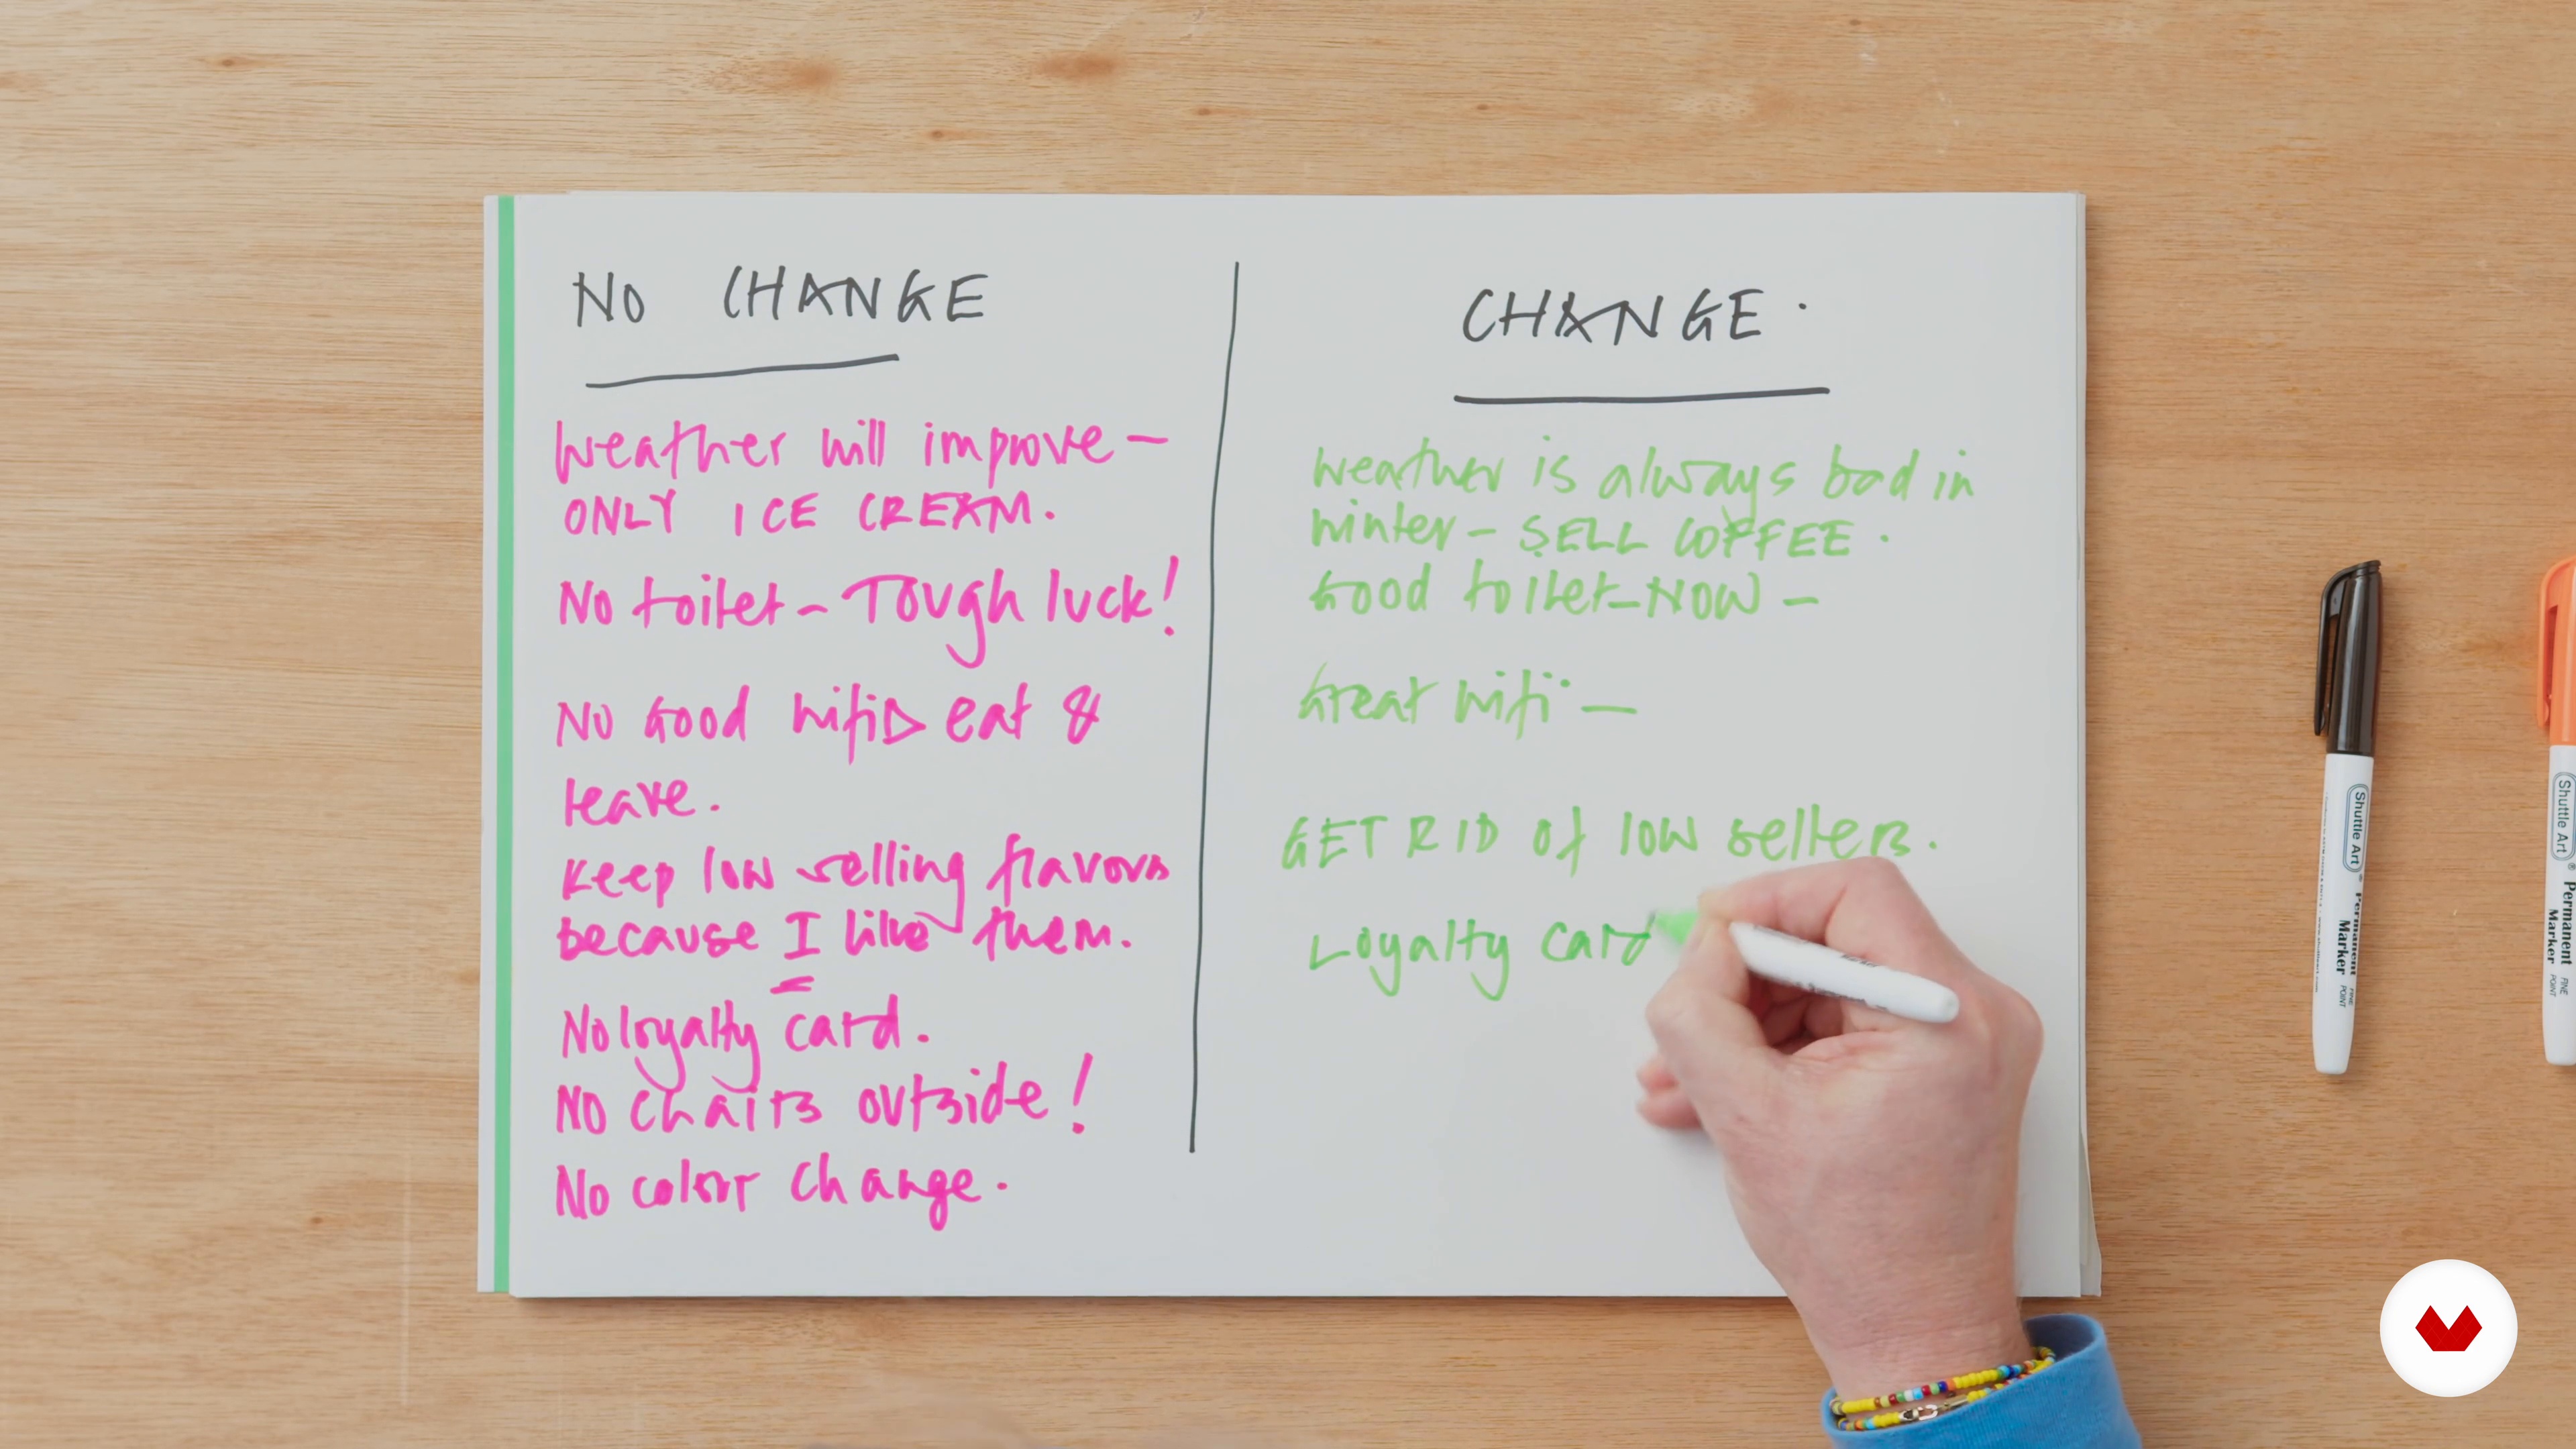 NO CHANGE
Weather will improve —
ONLY ICE CREAM.
No toilet - Tough luck!
No Good wifi ▷ eat &
leave.
Keep low selling flavors
because I like them.
No loyalty card.
No chairs outside!
No color change.
CHANGE.
Weather is always bad in
winter - SELL COFFEE.
Good toilet - NOW -
Great wifi —
GET RID of low sellers.
Loyalty card
Shuttle Art
Permanent
Marker
FINE
POINT
Shuttle Art®
Permanent
Marker
FINE
POINT